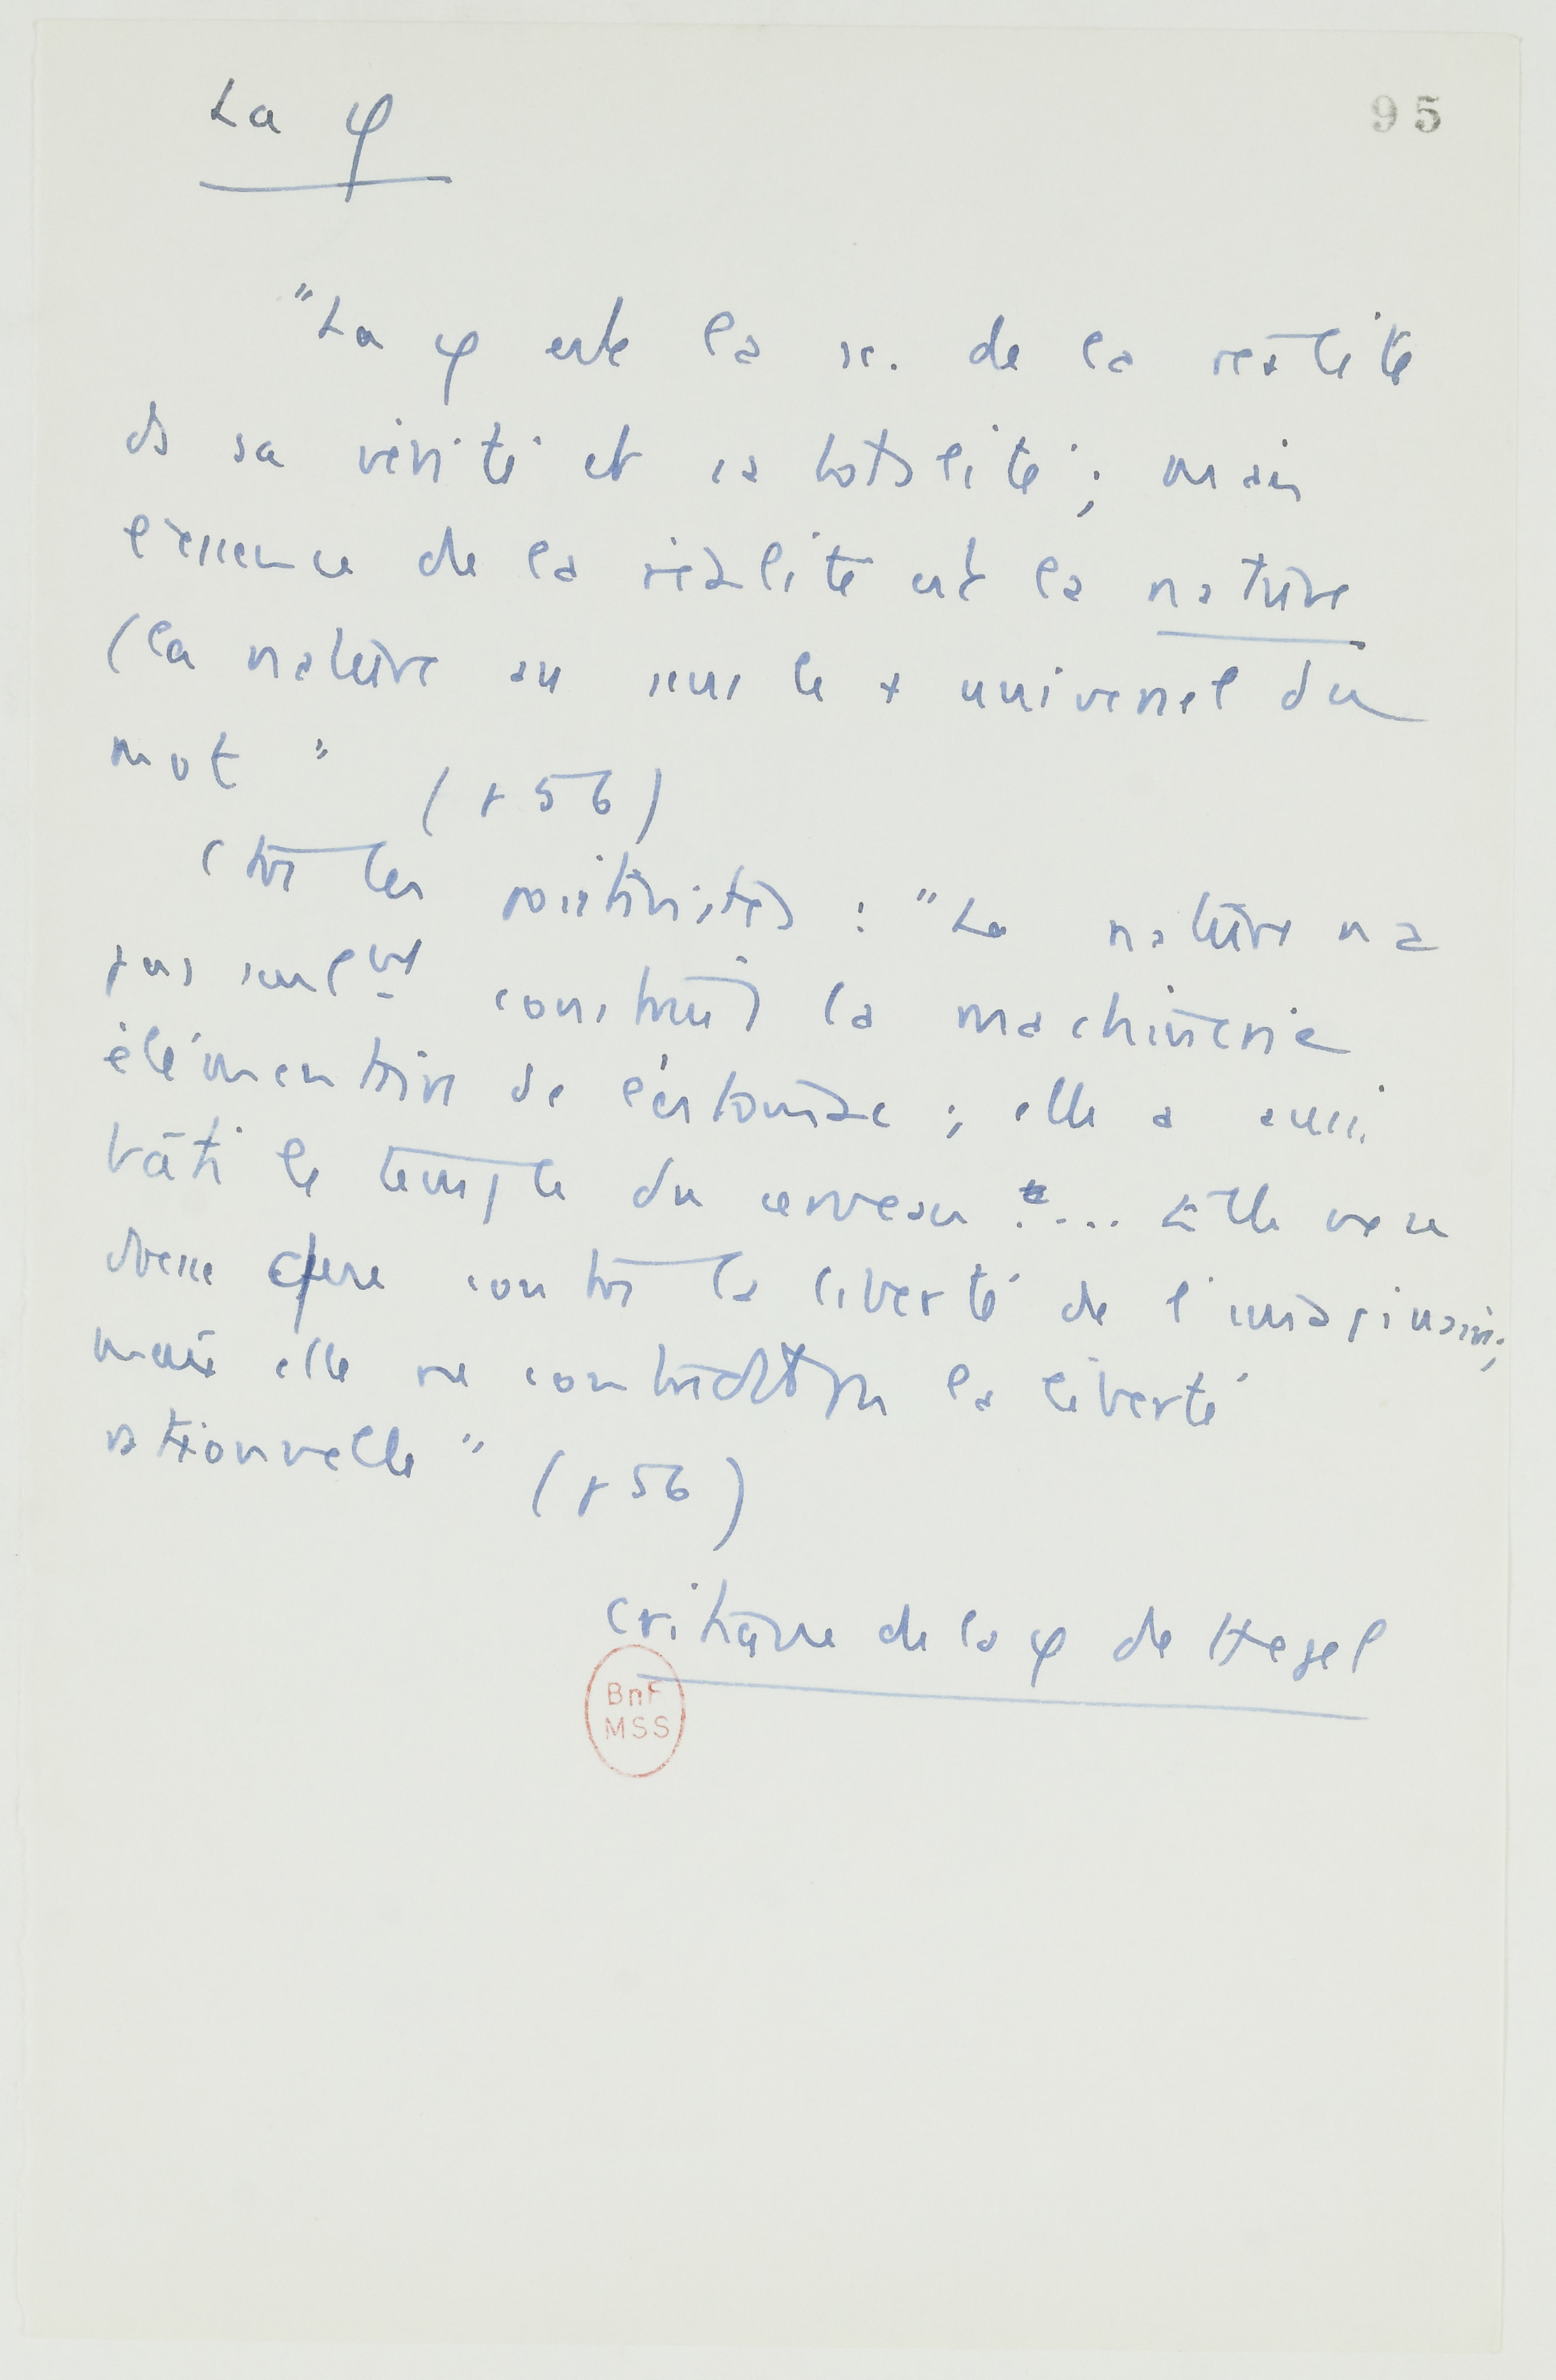 95
La φ
"La φ est la sc. de la réalité
ds sa vérité et sa totalité ; mais
l'essence de la réalité est la nature
(la nature au sens le + universel du
mot " (p 56)
Ctre les positivités : "La nature n'a
pas seulᵐᵗ construit la machinerie
élémentaire de l'estomac ; elle a aussi
bâti le temple du cerveau .... Elle ne se
dresse que contre la liberté de l'imaginaire;
mais elle ne contredit pas la liberté
rationnelle" (p 56)
Critique de la φ de Hegel
BnF
MSS